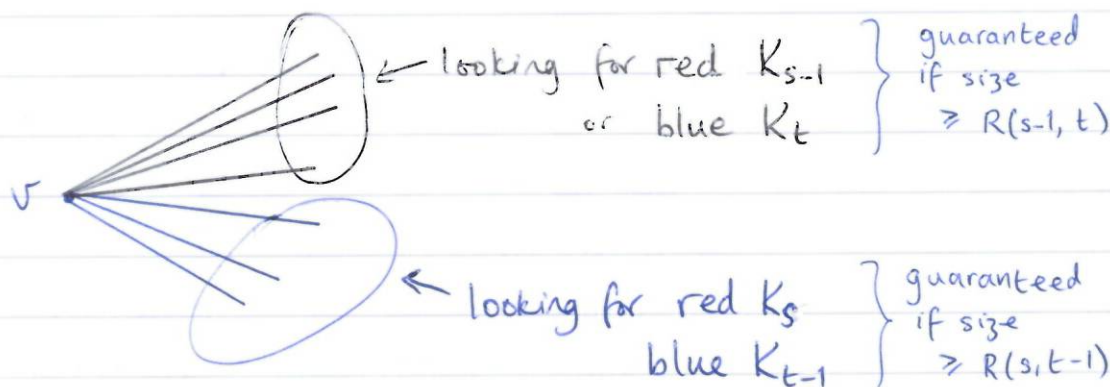 looking for red K_{s-1}
or blue K_t
guaranteed
if size
≥ R(s-1, t)
v
looking for red K_s
blue K_{t-1}
guaranteed
if size
≥ R(s, t-1)